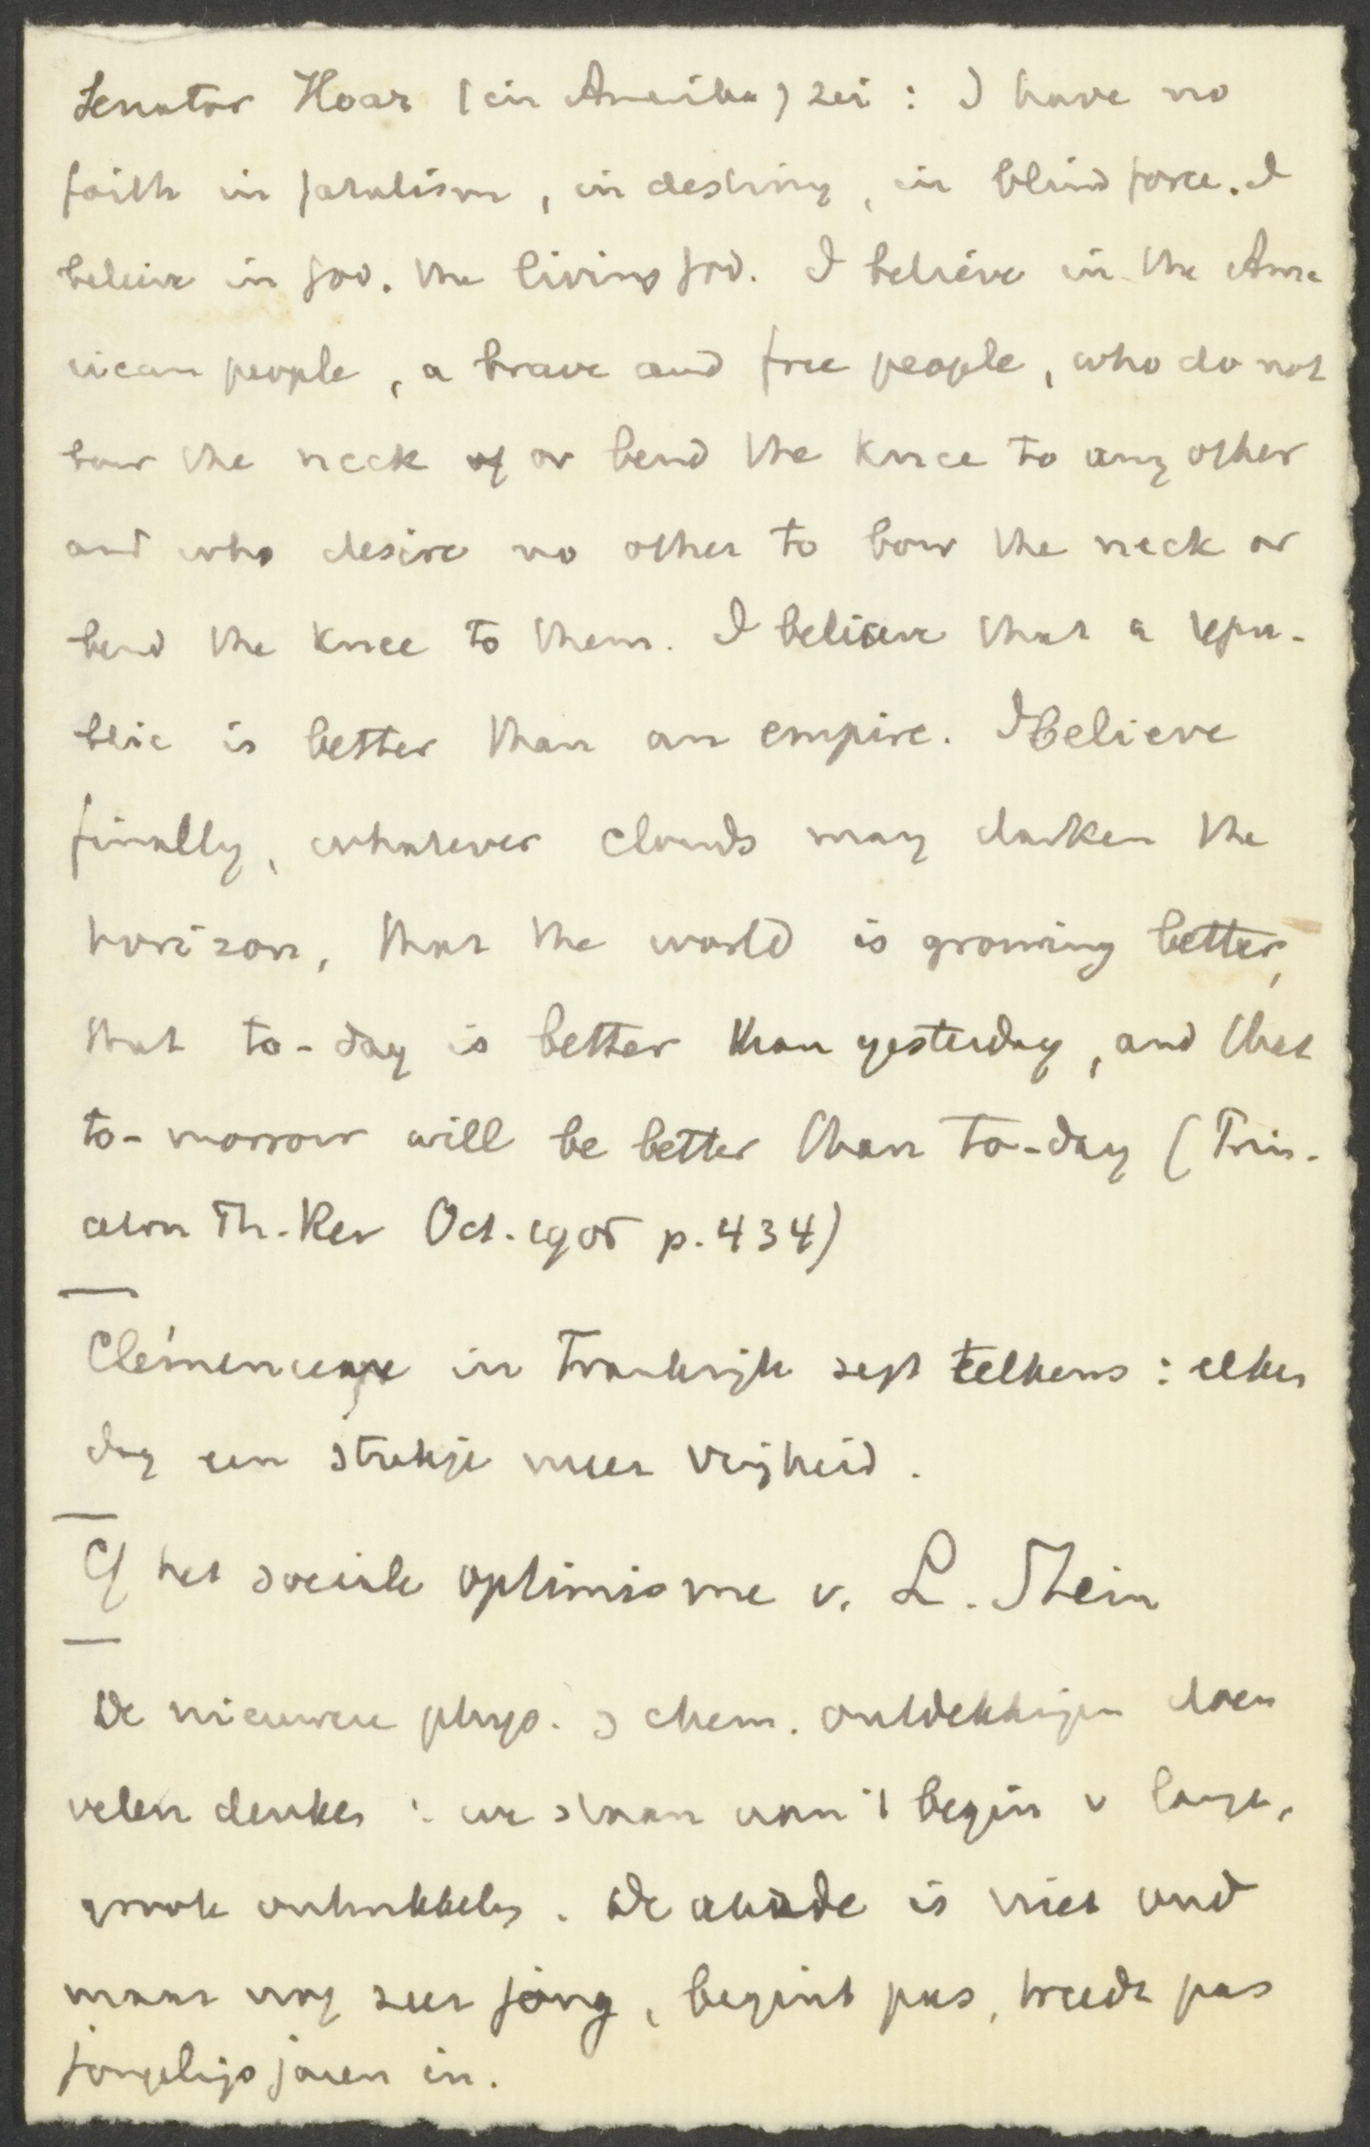 Senator Hoar (in Amerika) zei: I have no
faith in fatalism, in destiny, in blind force. I
believe in God, the living God. I believe in the Ame
rican people, a brave and free people, who do not
bow the neck or bend the knee to any other
and who desire no other to bow the neck or
bend the knee to them. I believe that a repu-
blic is better than an empire. I believe
finally, whatever clouds may darken the
horizon, that the world is growing better,
that to-day is better than yesterday, and that
to-morrow will be better than to-day (Prin-
ceton Th. Rev Oct. 1905 p. 434)
Clémenceau in Frankrijk zegt telkens: elken
dag een stukje meer vrijheid.
Cf het sociale optimisme v. L. Stein
De nieuwere phys. & chem. ontdekkingen doen
velen denken: we staan aan 't begin v lange,
groote ontwikkeling. De aarde is niet oud
maar nog zeer jong, begint pas, treedt pas
jongelingsjaren in.